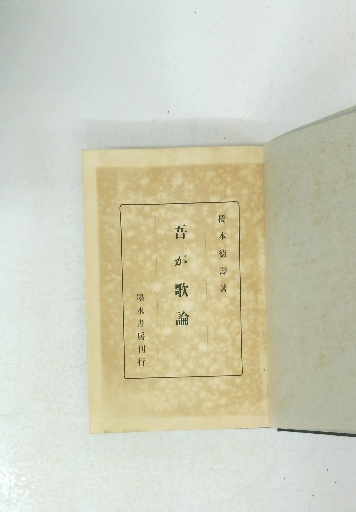 橋本德壽著
吾が歌論
墨水書房刊行